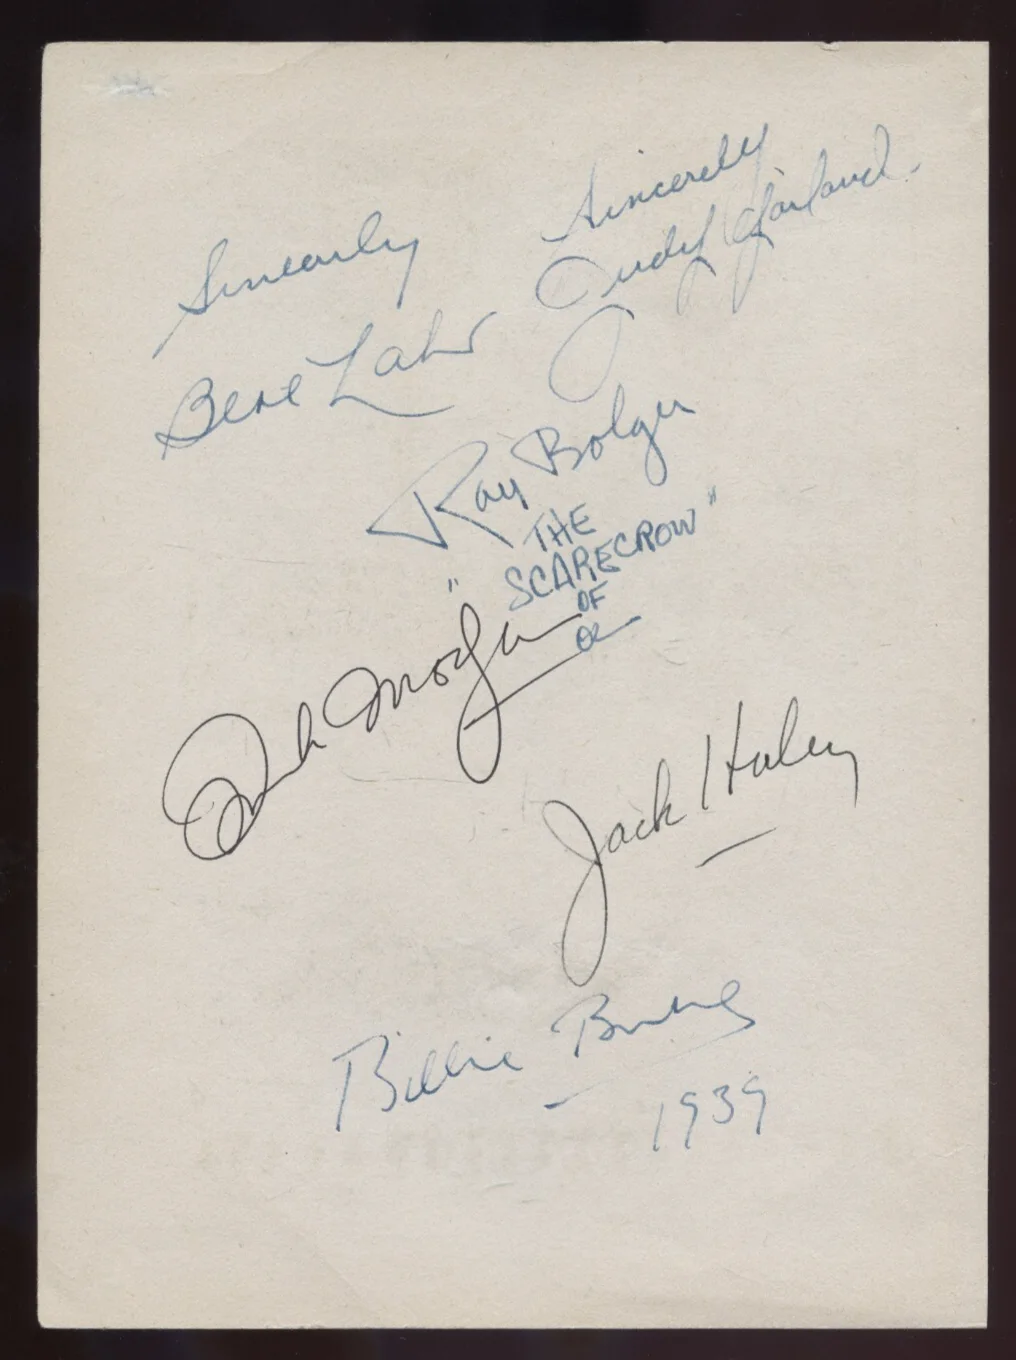 Sincerely
Bert Lahr
Sincerely
Judy Garland.
Ray Bolger
"THE
SCARECROW"
OF
OZ
Frank Morgan
Jack Haley
Billie Burke
1939